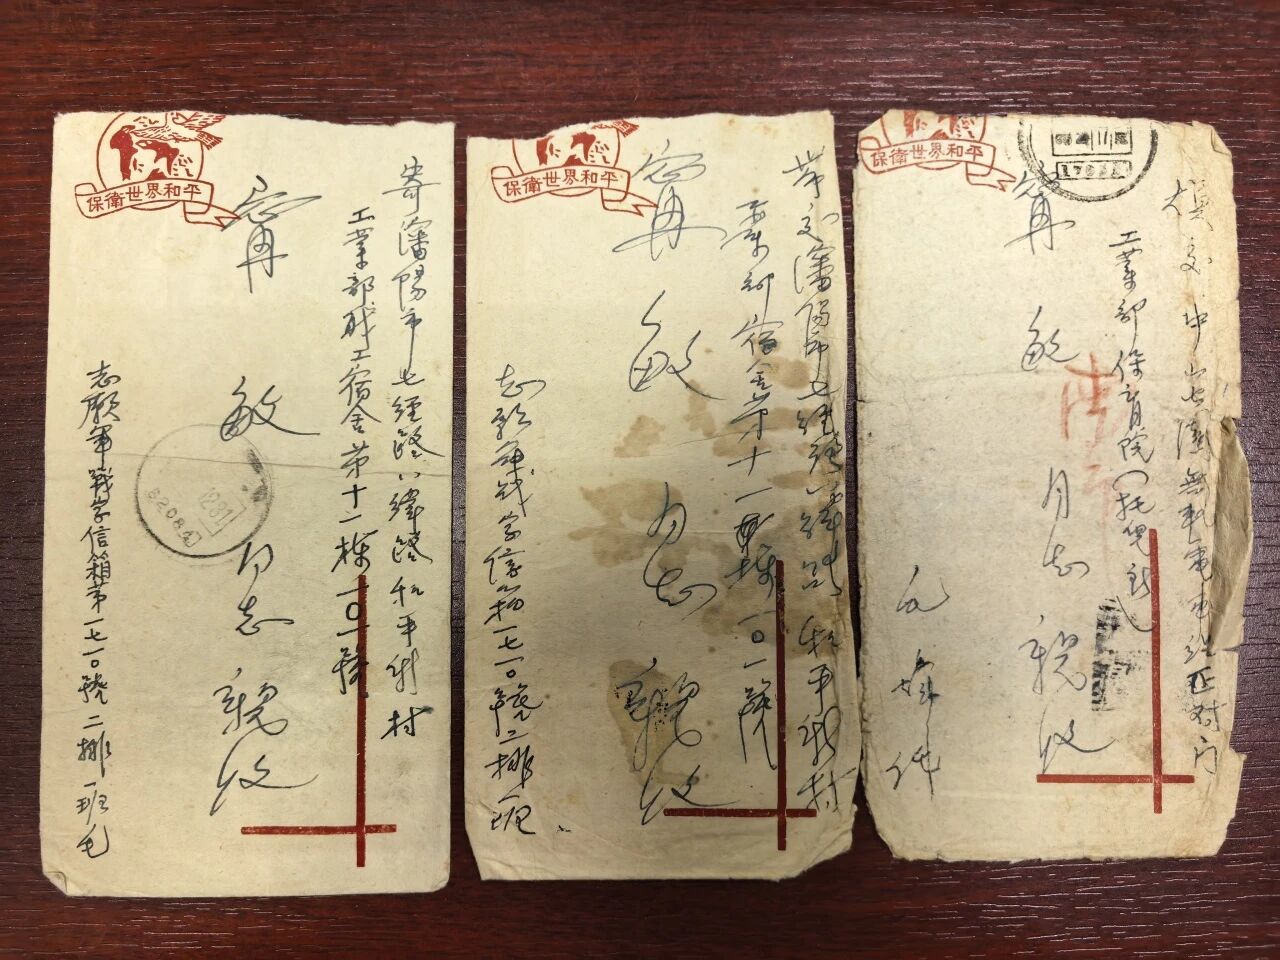 保衛世界和平
寄瀋陽市七經路八緯路和平新村
工業部職工宿舍第十二棟一〇一號
甯敏同志親收
志願軍戰字信箱第一七一〇號二排一班毛
保衛世界和平
瀋陽市七經路八緯路和平新村
業部宿舍第十一棟一〇一號
甯敏同志親收
志願軍戰字信箱一七一〇號二排一班
保衛世界和平
交中山七國無軌電車站正对门
工業部保育院(托兒所)
甯敏同志親收